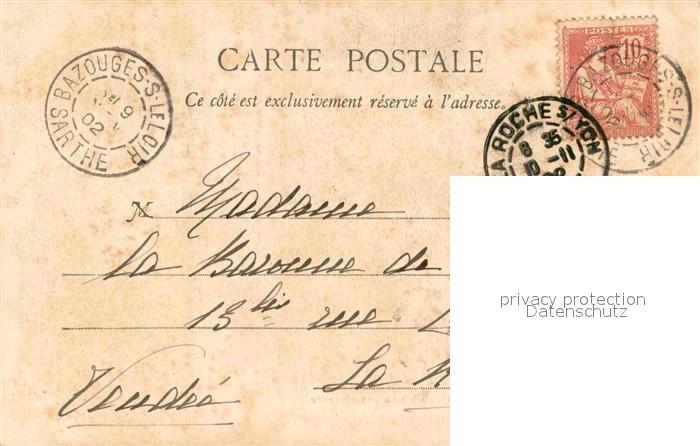 CARTE POSTALE
Ce côté est exclusivement réservé à l'adresse.
BAZOUGES-S-LE LOIR
9
02
SARTHE
10
BAZOUGES-S-LE LOIR
LA ROCHE S/YON
8 35
10 -11
Madame
la Baronne de
15 bis rue
La
Vendée
privacy protection
Datenschutz